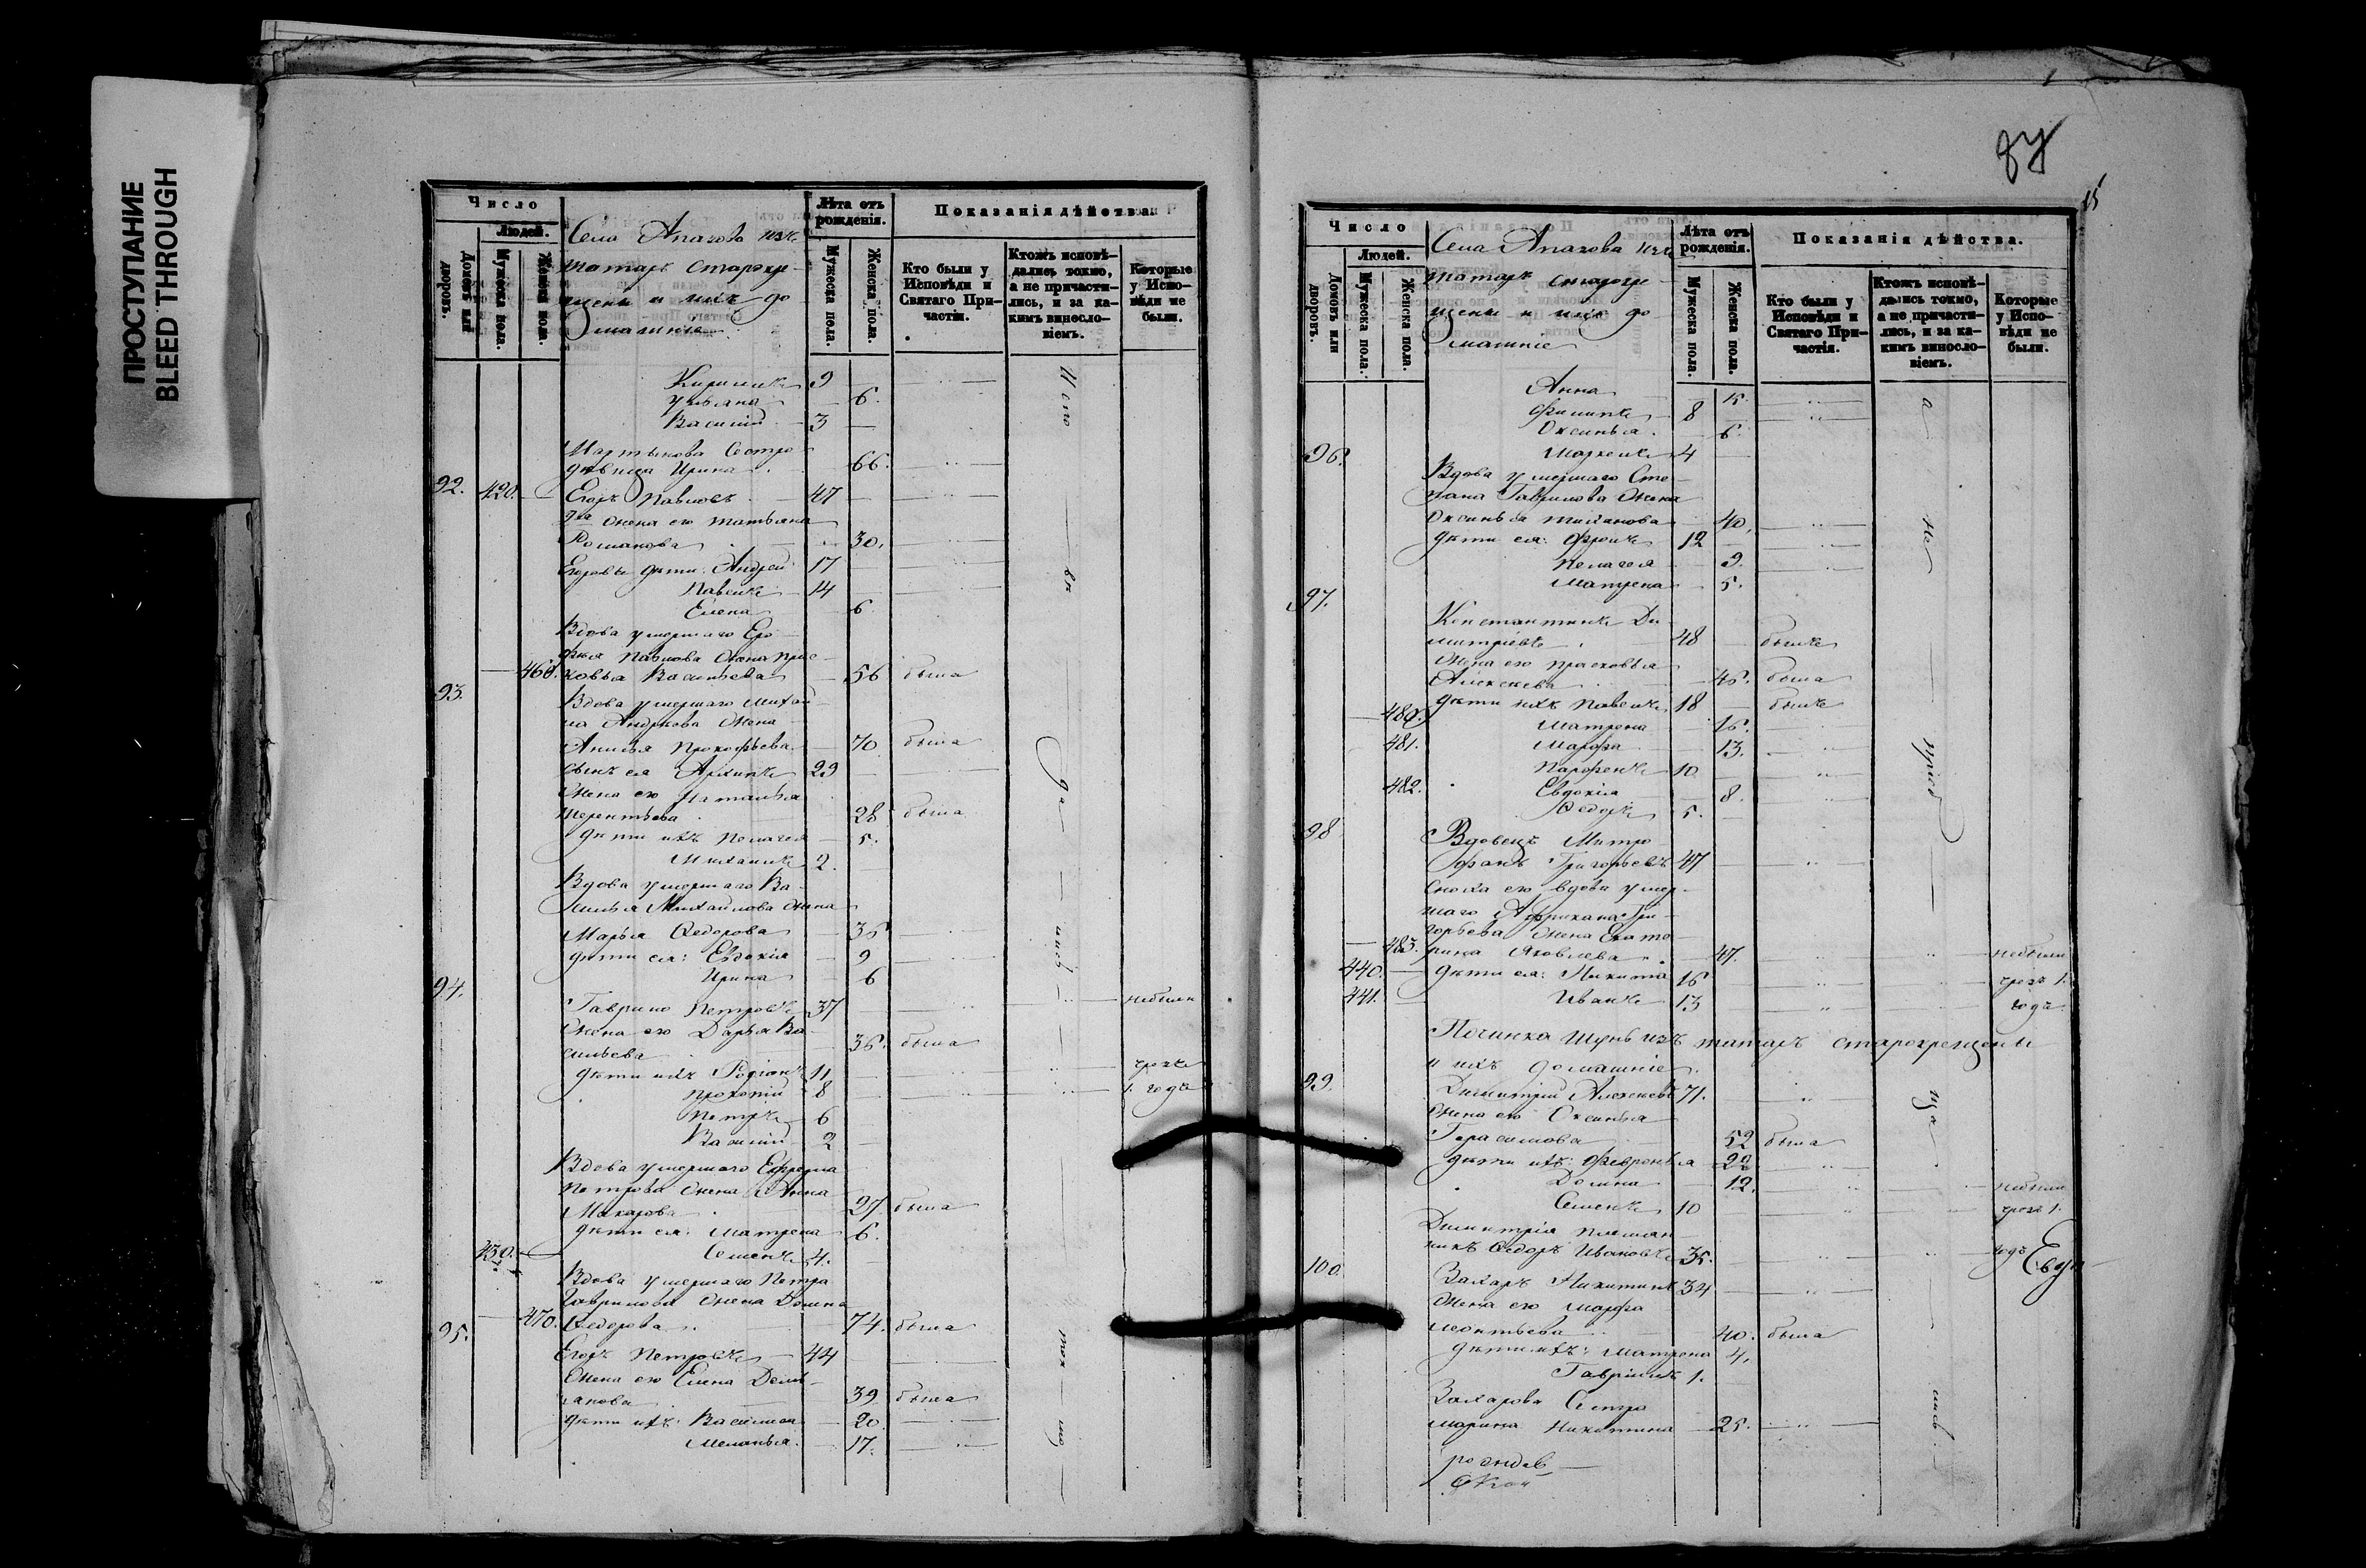 ПРОСТУПАНИЕ
BLEED THROUGH
Число
Людей.
Домовъ или дворовъ.
Мужеска пола.
Женска пола.
Села Апазова изъ
татаръ старокре-
щены и ихъ до
машніе
Лѣта отъ рожденія.
Мужеска пола.
Женска пола.
Показанія дѣйства.
Кто были у Исповѣди и Святаго Причастія.
Ктожъ исповѣ-
дались токмо,
а не причасти-
лись, и за ка-
кимъ винесло-
віемъ.
Которые у Испо-
вѣди не были.
Кирилъ 9
Ульяна 6.
Василій 3
Мартынова Сестра
дѣвица Ирина 66.
92. 420. Егоръ Павловъ 47
2я жена его Татьяна
Романова 30.
Егоровы дѣти: Андрей 17
Павелъ 14
Елена 6
Вдова умершаго Еро
фея Павлова жена Прас
460. ковья Васильева 56 была
93. Вдова умершаго Михаи
ла Андреева жена
Анисья Прокофьева 70 была
сынъ ея Архипъ 29
Жена его Наталья
Терентьева 28 была
дѣти ихъ Пелагея 5.
Михаилъ 2.
Вдова умершаго Ва
силья Михайлова жена
Марья Ѳедорова 35
дѣти ея: Евдокія 9
Ирина 6
94. Гаврило Петровъ 37 небыли
Жена его Дарья Ва
сильева 35. была
дѣти ихъ Родіонъ 11 чрезъ
Прокопій 8 1. годъ
Петръ 6
Василій 2
Вдова умершаго Ефрема
Петрова жена Анна
Макарова 27 была
дѣти ея: Матрена 6.
430. Семенъ 4.
Вдова умершаго Петра
Гаврилова жена Домна
470. Ѳедорова 74. была
95. Егоръ Петровъ 44
Жена его Елена Демь-
янова 39 была
дѣти ихъ: Василиса 20
Меланья 17.
87
15
Число
Людей.
Домовъ или дворовъ.
Мужеска пола.
Женска пола.
Села Апазова изъ
татаръ старокре
щены и ихъ до
машніе
Лѣта отъ рожденія.
Мужеска пола.
Женска пола.
Показанія дѣйства.
Кто были у Исповѣди и Святаго При-
частія.
Ктожъ исповѣ-
дались токмо,
а не причасти-
лись, и за ка-
кимъ винесло-
віемъ.
Которые у Испо-
вѣди не были.
Анна 15.
Филипъ 8
Оксинья 6.
Маркелъ 4
96. Вдова умершаго Сте
пана Гаврилова жена
Оксинья 40.
дѣти ея: Фролъ 12
Пелагея 9.
Матрена 5.
97. Константинъ Ди
митріевъ 48 былъ
Жена его Прасковья
Алексеева 45. была
дѣти ихъ Павелъ 18 былъ
480. Матрена 16.
481. Марфа 13.
Парфенъ 10
482. Евдокія 8.
Ѳедоръ 5.
98 Вдовецъ Митро
фанъ Григорьевъ 47
Сноха его вдова умер
шаго Африкана Гри
горьева жена Екате
483. рина Яковлева 47. небыли
440. дѣти ея: Никита 16 чрезъ 1.
441. Иванъ 13 годъ
Починка Шунь изъ татаръ старокрещены
и ихъ домашніе
99. Димитрій Алексеевъ 71.
Жена его Оксинья
Герасимова 52 была
дѣти ихъ: Февронья 22
Домна 12. небыли
Семенъ 10 чрезъ 1.
Димитрія племян
никъ Ѳедоръ Ивановъ 35. годъ
100. Захаръ Никитинъ 34
Жена его Марфа
Леонтьева 40. была
дѣти ихъ: Матрена 4.
Гавріилъ 1.
Захарова Сестра
Марина Никитина 25.